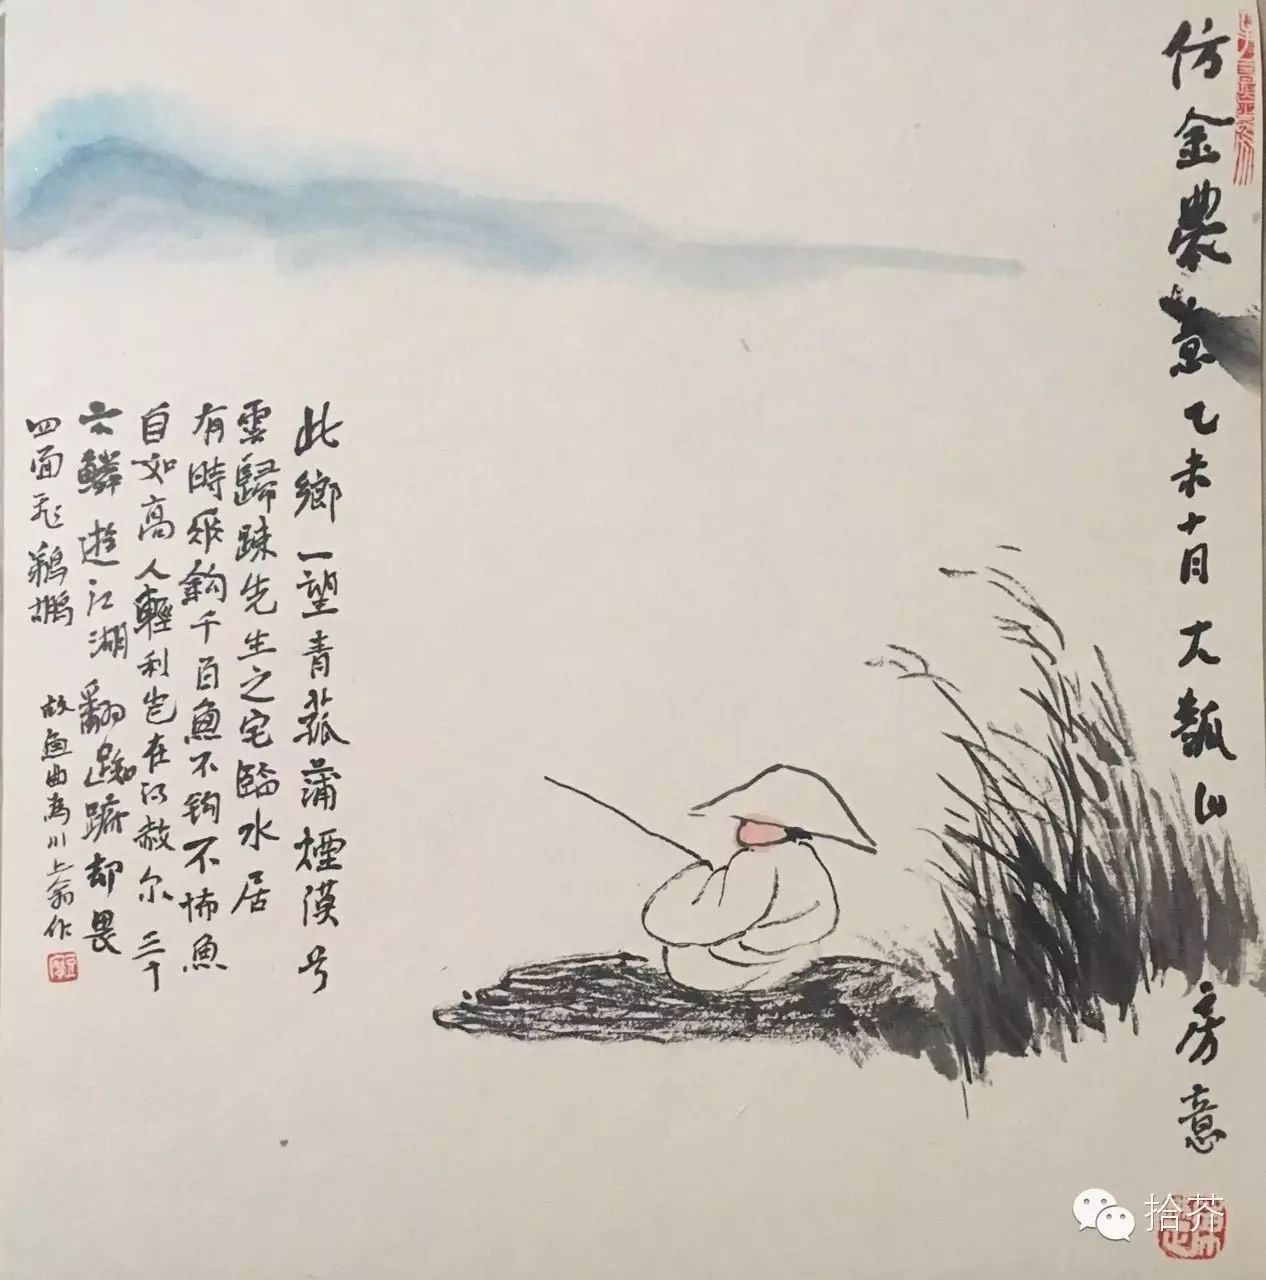 仿金農意乙未十月大瓢山房意
此鄉一望青菰蒲煙漠兮
雲歸疎先生之宅臨水居
有時垂鈎千百魚不鈎不怖魚
自如高人輕利豈在得赦尔三十
六鱗遊江湖翻躋却畏
四面飛鵜鶘
魚曲為川上翁作
拾芥